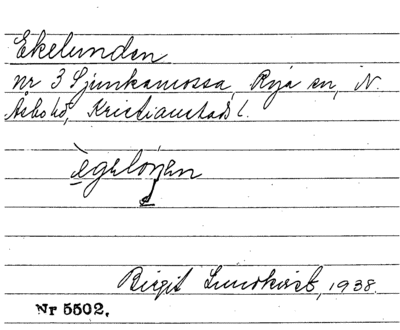 Ekelunden
nr 3 Sjunkamossa, Rya sn, N.
Åsbo hd, Kristianstads l.
Birgit Lundkvist, 1938.
Nr 5502.